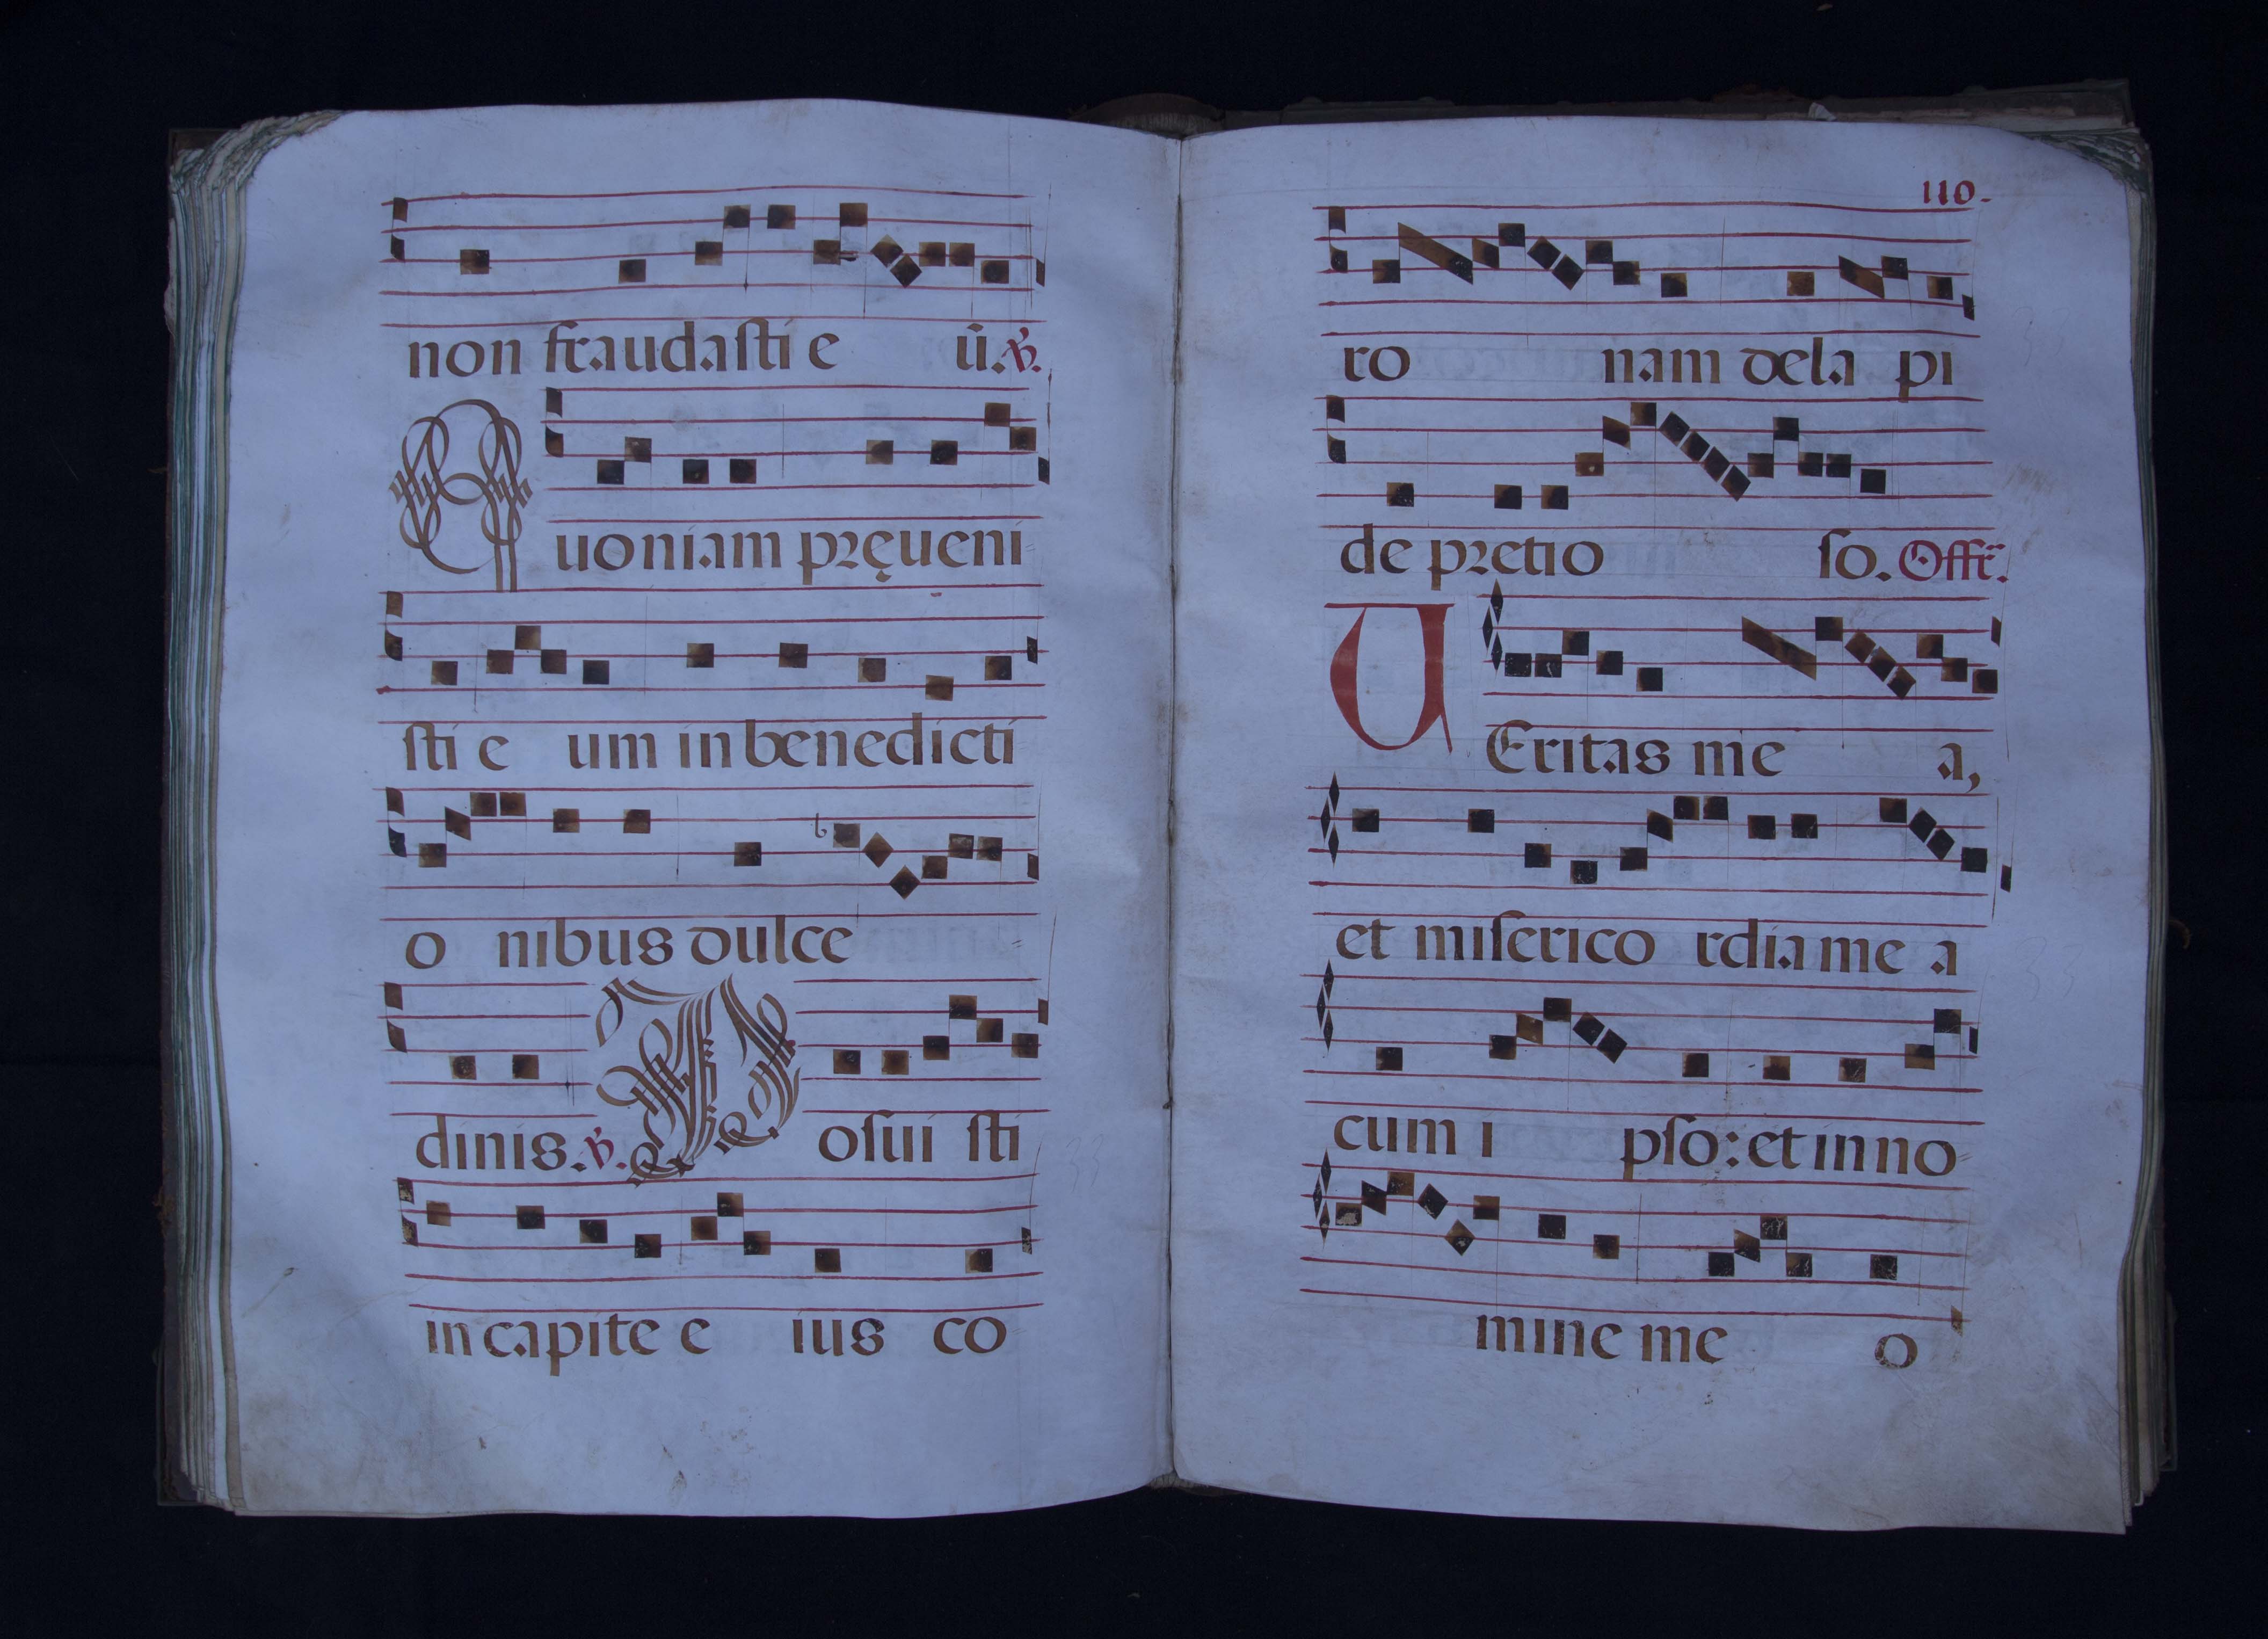 non fraudasti e ũ. ℣.
Quoniam pręueni
sti e um in benedicti
o nibus dulce
dinis. ℣. Posui sti
in capite e ius co
110.
ro nam de la pi
de pretio so. Offr̃.
VEritas me a,
et miserico rdia me a
cum i pso: et in no
mine me o